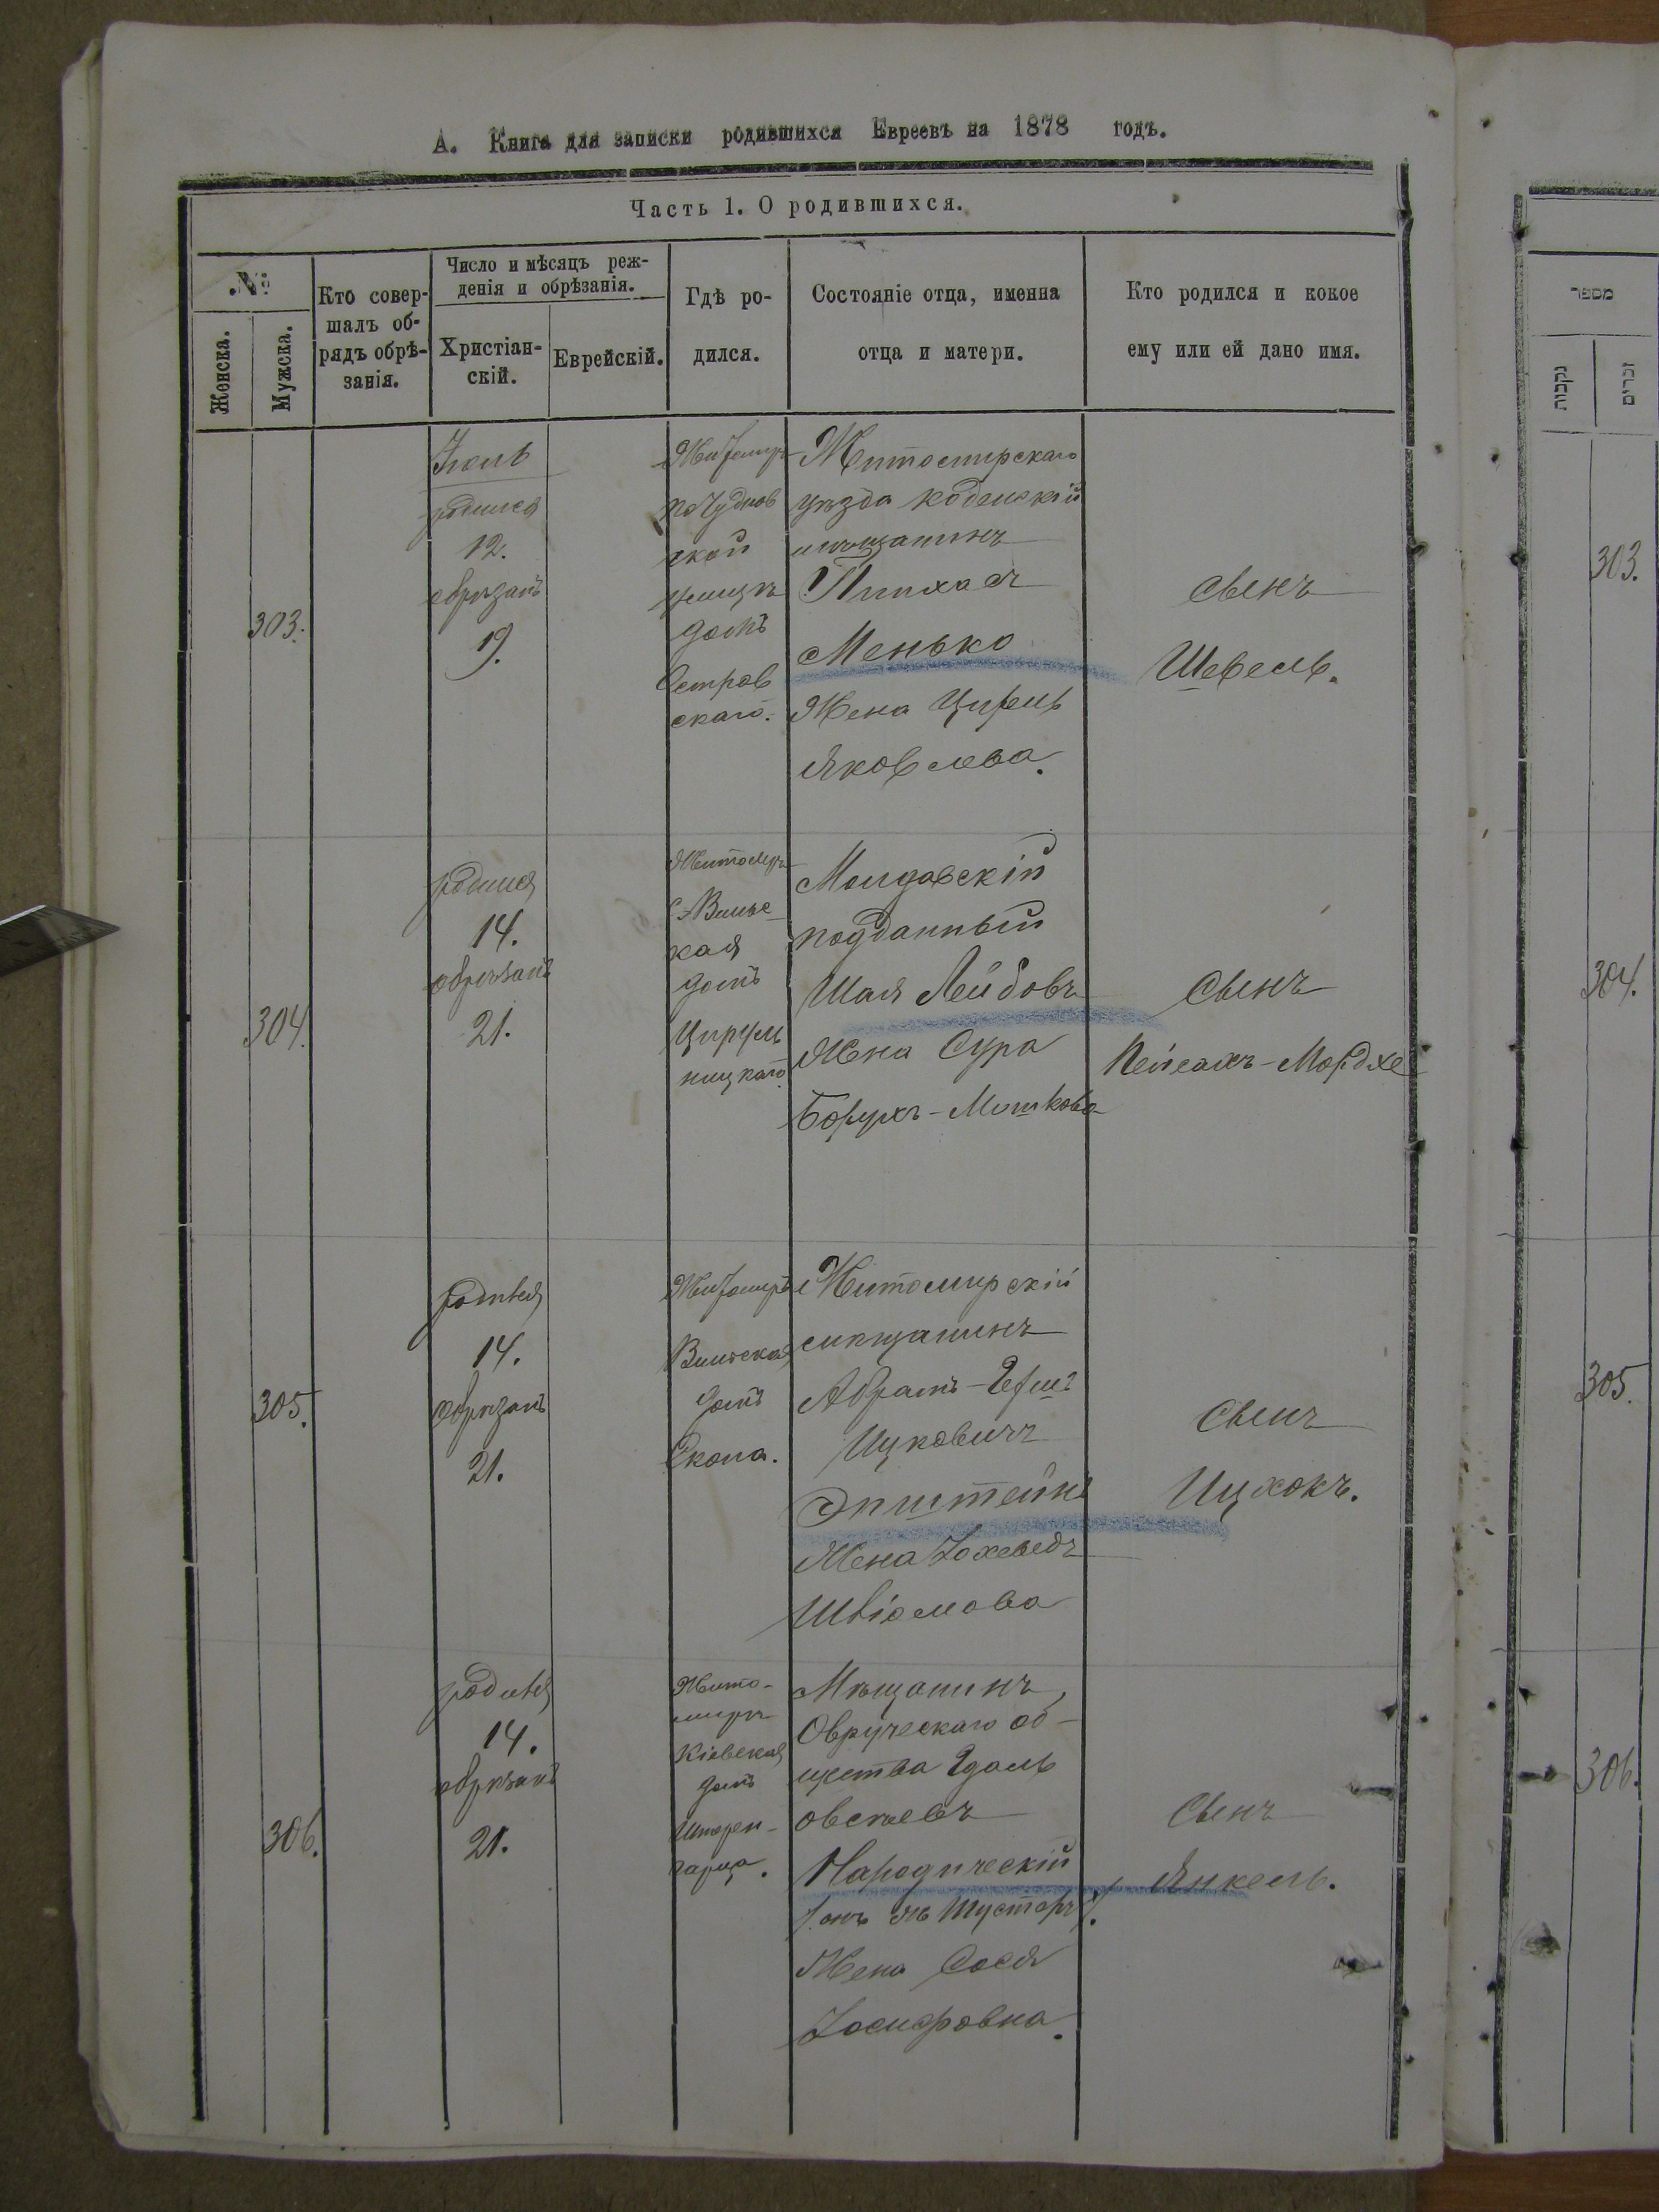 А. Книга для записки родившихся Евреевъ на 1878 годъ.
Часть 1. О родившихся.
№
Женска.
Мужска.
Кто совер-
шалъ об-
рядъ обрѣ-
занія.
Число и мѣсяцъ реж-
денія и обрѣзанія.
Христіан-
скій.
Еврейскій.
Гдѣ ро-
дился.
Состояніе отца, именна
отца и матери.
Кто родился и кокое
ему или ей дано имя.
303.
Іюль
родился
12.
обрѣзанъ
19.
Житомиръ
по Чуднов
ской
улицѣ
домъ
Остров
скаго.
Житомирскаго
уѣзда Коденскій
мѣщанинъ
Пинхас
Менько
Жена Цирель
Яковлева.
сынъ
Шевель.
304.
родился
14.
обрѣзанъ
21.
Житомиръ
Вильс-
кая
домъ
Цируль
ницкаго.
Молдавскій
подданный
Шая Лейбовъ
Жена Сура
Борухъ-Мошкова
Сынъ
Пейсахъ-Мордхе
305.
родился
14.
обрѣзанъ
21.
Житомиръ
Вильская
домъ
Скопа.
Житомирскій
мѣщанинъ
Абрамъ-Гершъ
Ицковичъ
Эпштейнъ
Жена Іохеведъ
Шліомова
Сынъ
Ицхокъ.
306.
родился
14.
обрѣзанъ
21.
Жито-
миръ
Кіевская
домъ
Штерен-
гарца.
Мѣщанинъ,
Овручскаго об-
щества Гдаль
Овсѣевъ
Народическій
/: онъ же Шустеръ :/.
Жена Сося
Іосифовна.
Сынъ
Янкель.
מספר
נקבות
זכרים
303.
304.
305.
306.